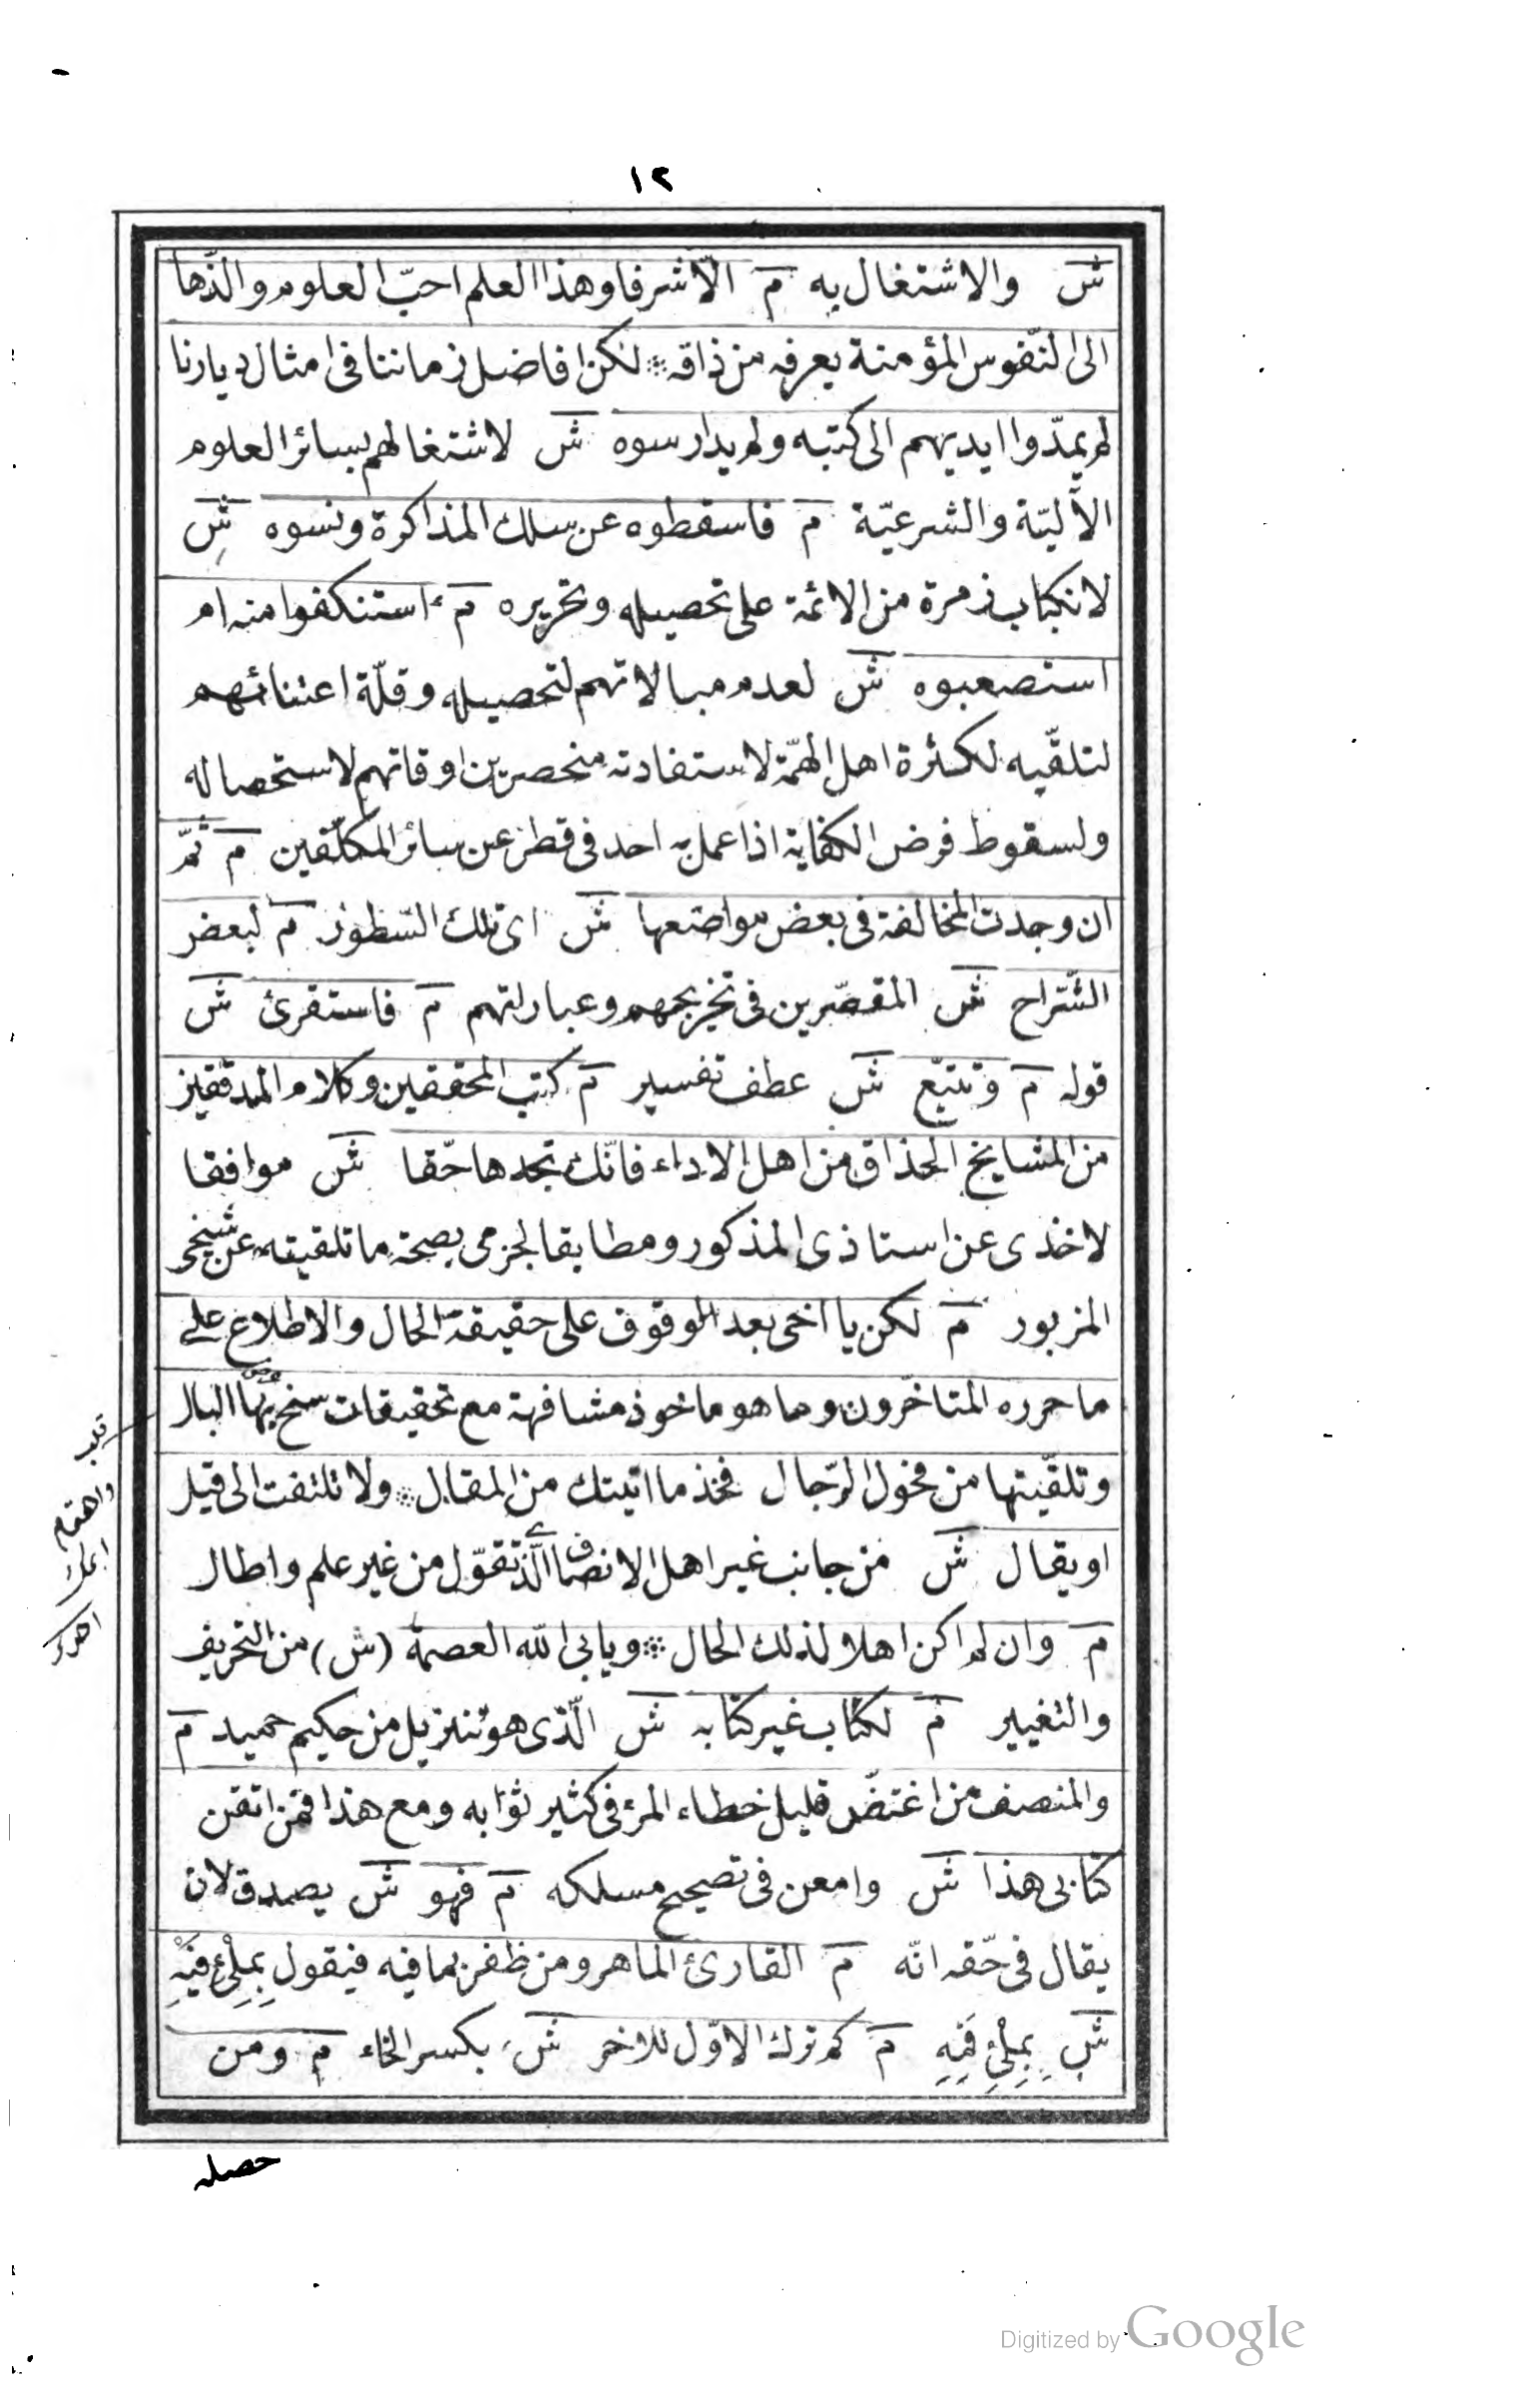 ١٢
ش والاشتغال به م الّا شرفا وهذا العلم احبّ العلوم والذّها
الى النّفوس المؤمنة يعرفه من ذاقه ⁘ لكن افاضل زماننا فى امثال ديارنا
لم يمدّوا ايديهم الى كتبه ولم يدارسوه ش لاشتغالهم بسائر العلوم
الآليّة والشرعيّة م فاسقطوه عن سلك المذاكرة ونسوه ش
لانكباب زمرة من الائمة على تحصيله وتحريره م ءاستنكفوا منه ام
استصعبوه ش لعدم مبالاتهم لتحصيله وقلّة اعتنائهم
لتلقّيه لكثرة اهل الهمّة لاستفادته منحصرين اوقاتهم لاستحصاله
ولسقوط فرض الكفاية اذا عمل به احد فى قطر عن سائر المكلّفين م ثمّ
ان وجدت المخالفة فى بعض مواضعها ش اى تلك السّطور م لبعض
الشّراح ش المقصّرين فى تخريجهم وعباراتهم م فاستقرئ ش
قوله م وتتبّع ش عطف تفسير م كتب المحققين وكلام المدقّقين
من المشايخ الحذاق من اهل الاداء فانّك تجدها حقّا ش موافقا
لاخذى عن استاذى المذكور ومطابقا لجزمى بصحة ما تلقيته عن شيخى
المزبور م لكن يا اخى بعد الوقوف على حقيقة الحال والاطلاع على
ما حرره المتاخّرون وما هو ماخوذ مشافهة مع تحقيقات سنح بها البال
وتلقّيتها من فحول الرّجال فخذ ما اتيتك من المقال ⁘ ولا تلتفت الى قيل
او يقال ش من جانب غير اهل الانصاف الّذى تقوّل من غير علم واطال
م وان لم اكن اهلا لذلك الحال ⁘ ويابى الله العصمة (ش) من التحريف
والتغيير م لكتاب غير كتابه ش الّذى هو تنزيل من حكيم حميد م
والمنصف من اغتفر قليل خطاء المرء فى كثير ثوابه ومع هذا فمن اتقن
كتابى هذا ش وامعن فى تصحيح مسلكه م فهو ش يصدق لان
يقال فى حقّه انّه م القارئ الماهر ومن ظفر بما فيه فيقول بِمِلْئِ فِيْهِ
ش بِمِلْئِ فَمِهِ م كم ترك الاوّل للاخر ش بكسر الخاء م ومن
حصله
قلب